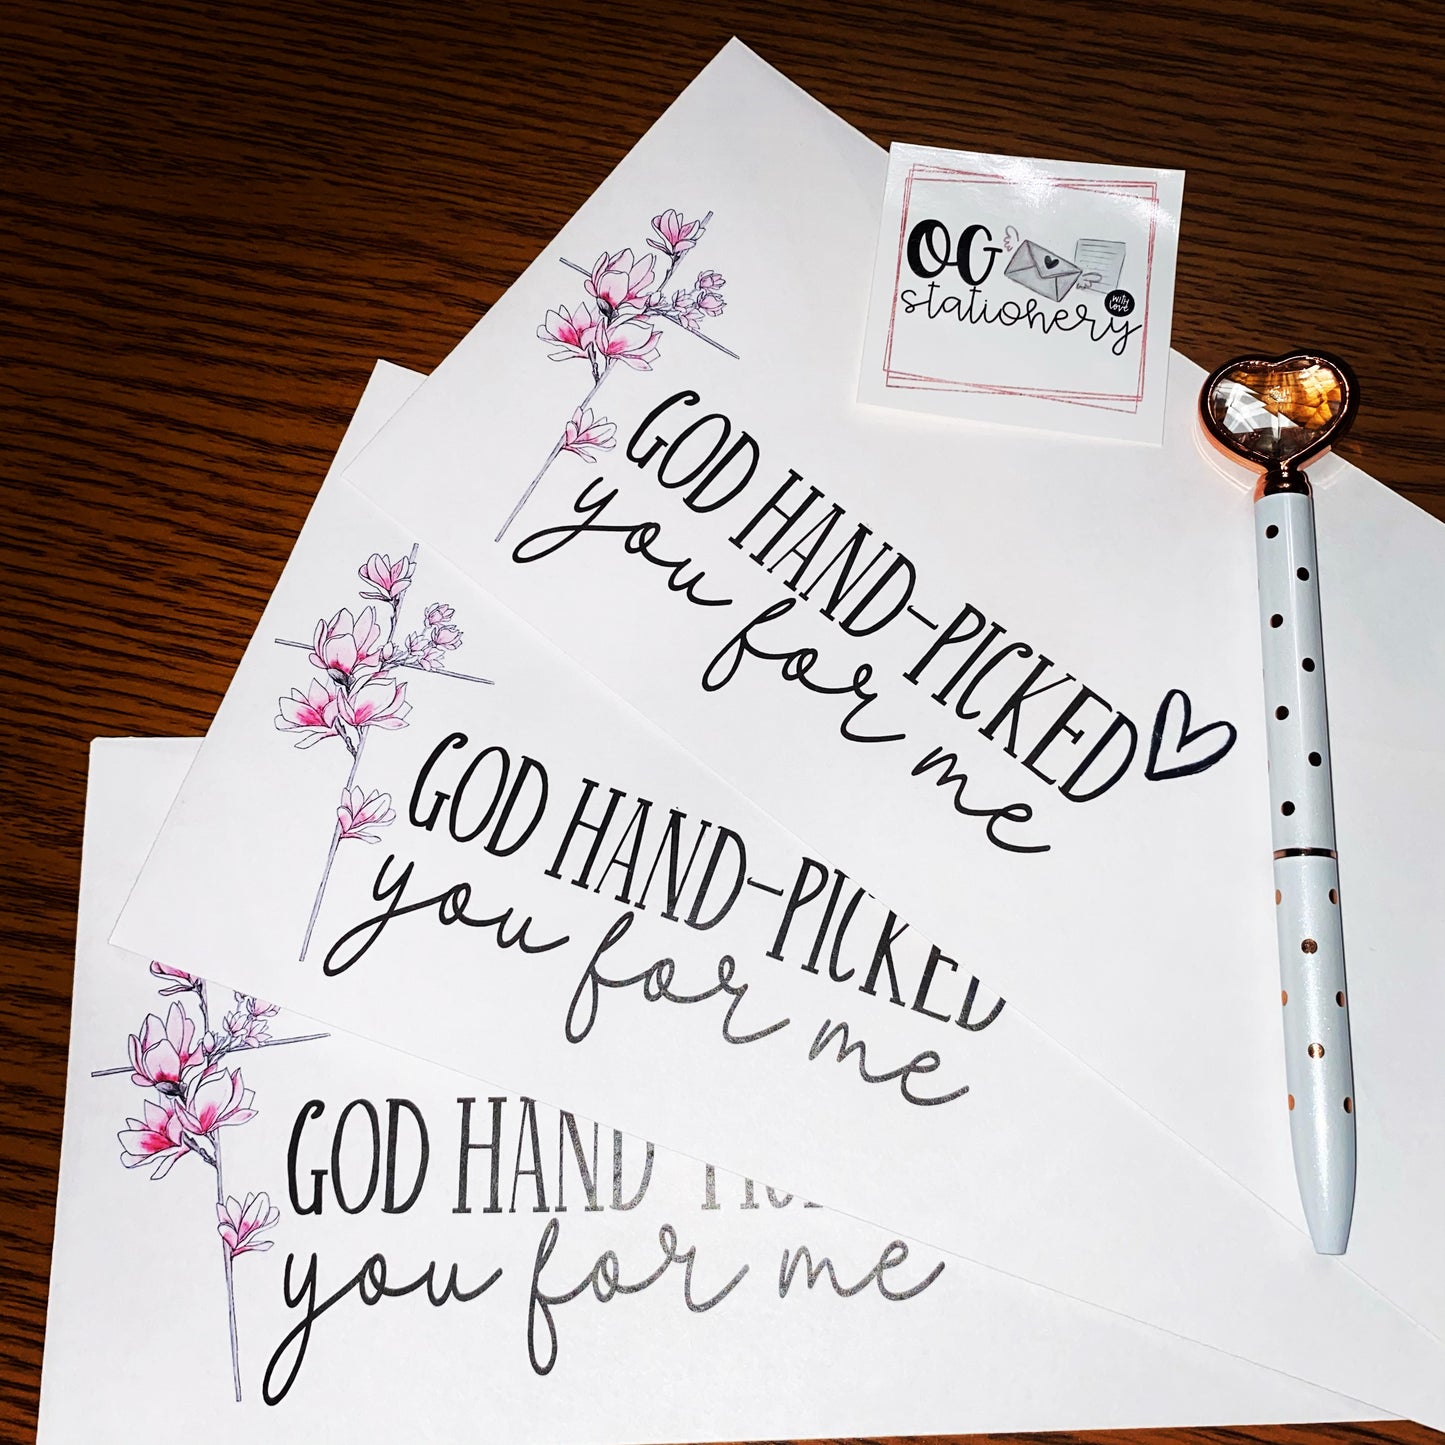 OG
stationery
WITH
LOVE
GOD HAND-PICKED
you for me
GOD HAND-PICKED
you for me
GOD HAND
you for me